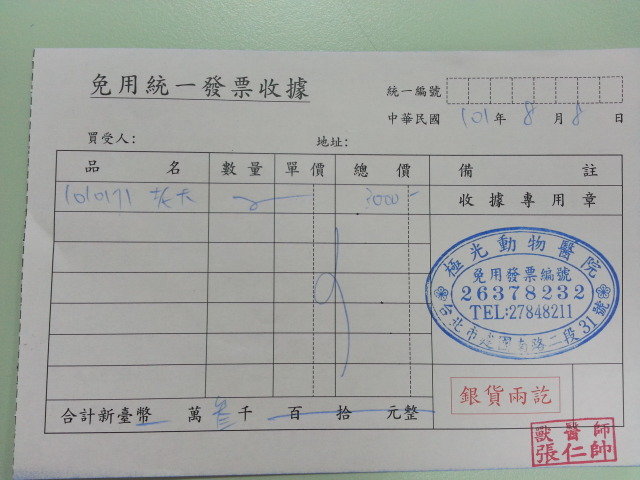 免用統一發票收據
統一編號
中華民國 101 年 8 月 8 日
買受人: 地址:
品名 數量 單價 總價 備註
1010171 3000 收據專用章
極光動物醫院
免用發票編號
26378232
TEL:27848211
台北市 南路二段31號
銀貨兩訖
合計新臺幣 萬 叁 千 百 拾 元整
獸醫師
張仁帥